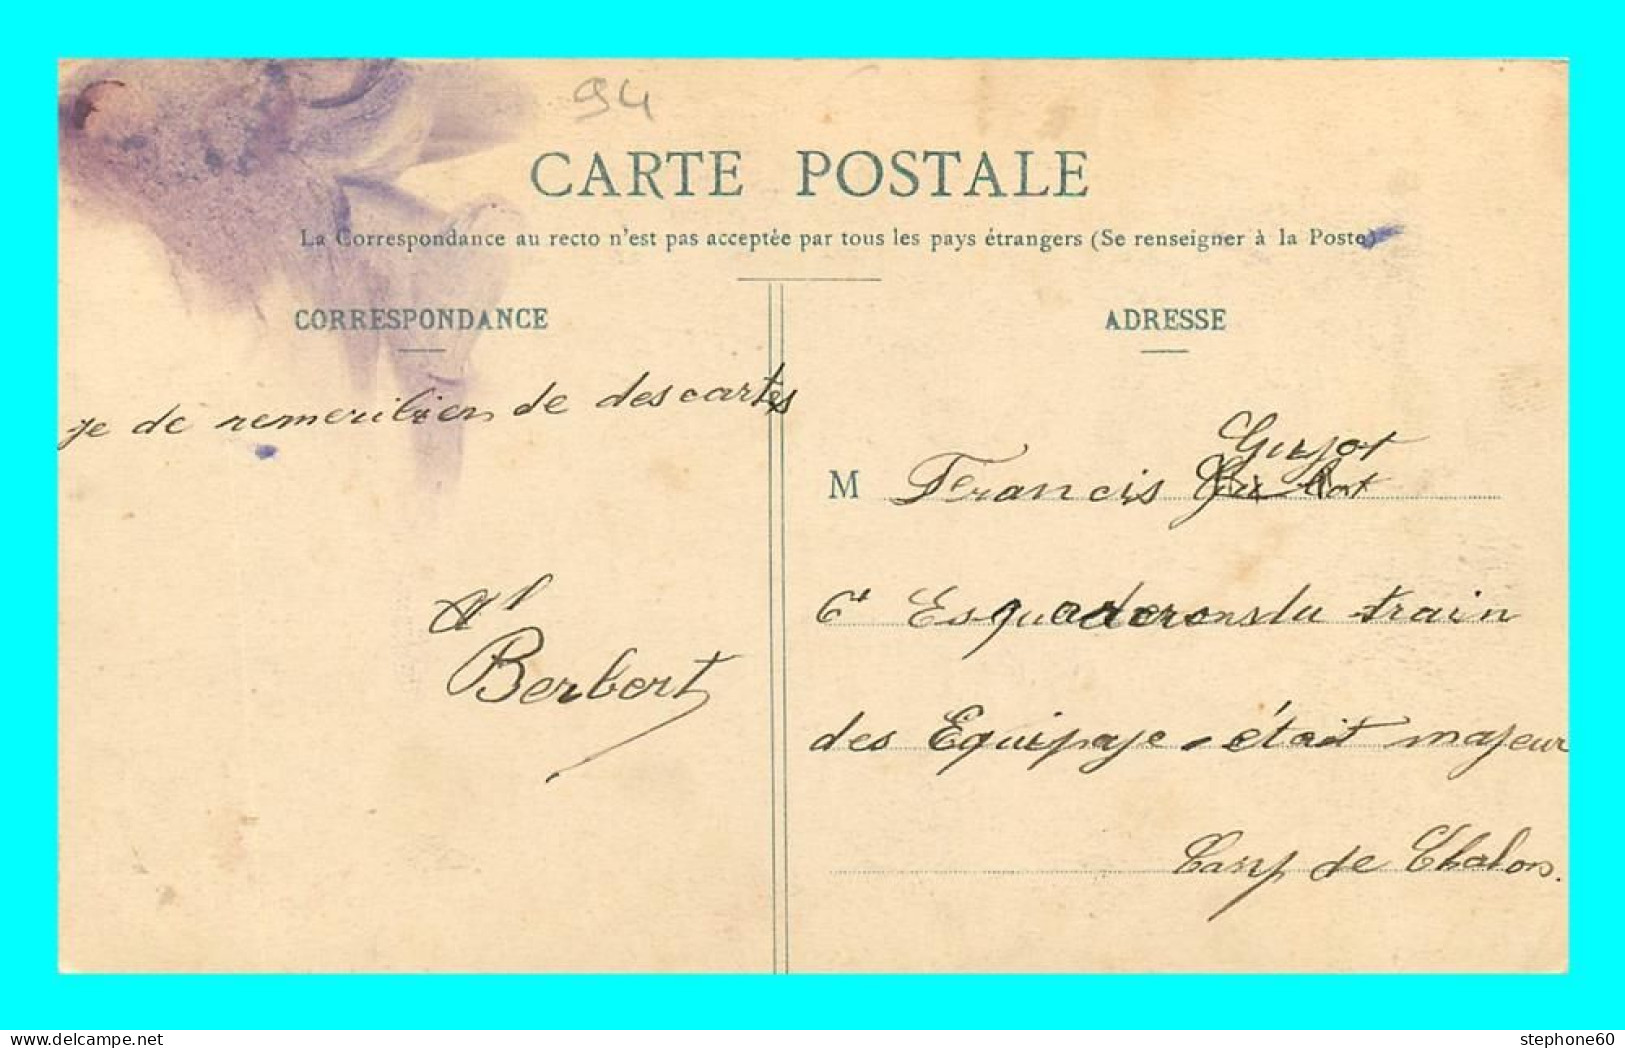 94
CARTE POSTALE
La Correspondance au recto n'est pas acceptée par tous les pays étrangers (Se renseigner à la Poste)
CORRESPONDANCE
je de remerci bien de des cartes
Al
Berbert
ADRESSE
Guyot
M Francis
6e Esquadrons du train
des Equipage - était majeur
Camp de Chalons.
stephone60